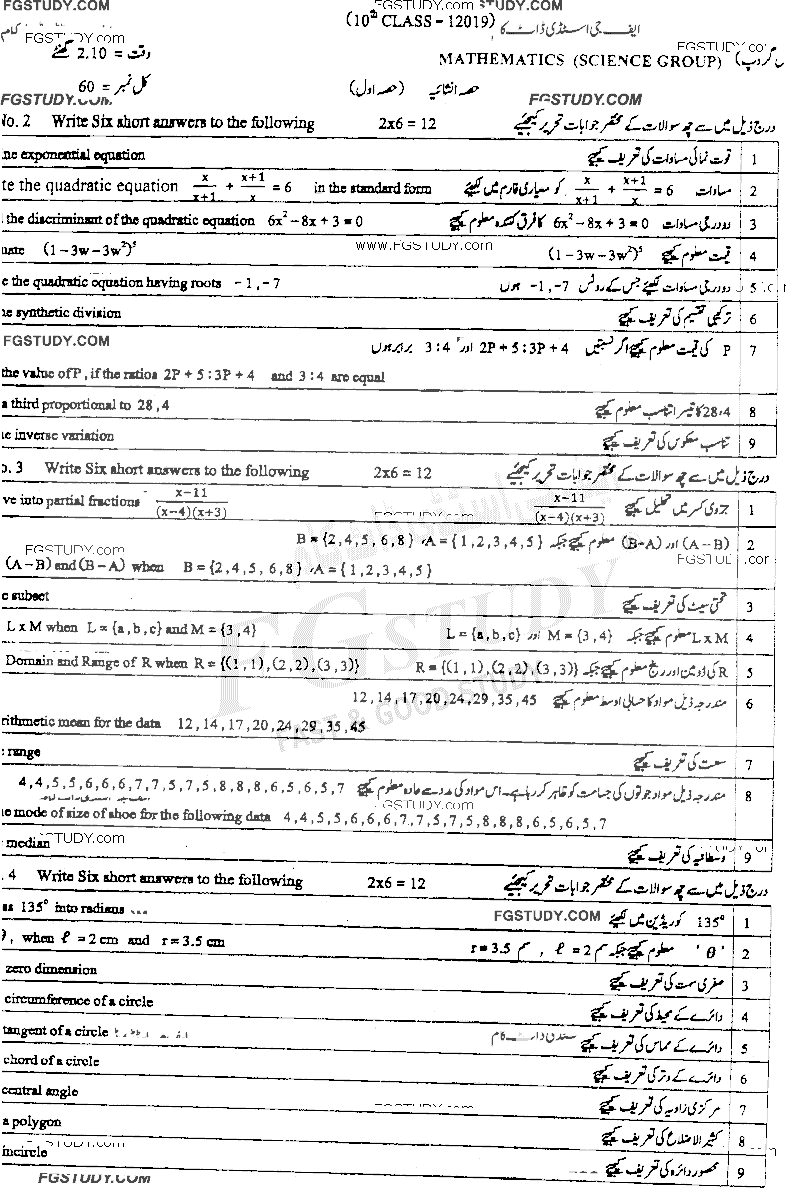 FGSTUDY.COM FGSTUDY.COM FGSTUDY.COM
(10th CLASS - 12019) ایف جی اسٹڈی ڈاٹ کام
FGSTUDY.com
وقت = 2.10 گھنٹے MATHEMATICS (SCIENCE GROUP)
کل نمبر = 60 (حصہ اول) حصہ انشائیہ
FGSTUDY.COM FGSTUDY.COM
No. 2 Write Six short answers to the following 2x6 = 12 درج ذیل میں سے چھ سوالات کے مختصر جوابات تحریر کیجئے
ne exponential equation قوت نمائی مساوات کی تعریف کیجئے 1
te the quadratic equation x/x+1 + x+1/x = 6 in the standard form مساوات x/x+1 + x+1/x = 6 کو معیاری فارم میں لکھئے 2
the discriminant of the quadratic equation 6x² - 8x + 3 = 0 دو درجی مساوات 6x² - 8x + 3 = 0 کا فرق کنندہ معلوم کیجئے 3
uate (1 - 3w - 3w²)⁵ www.FGSTUDY.com (1 - 3w - 3w²)⁵ قیمت معلوم کیجئے 4
e the quadratic equation having roots -1, -7 دو درجی مساوات لکھئے جس کے روٹس -1, -7 ہوں 5
ne synthetic division ترکیبی تقسیم کی تعریف کیجئے 6
FGSTUDY.COM P کی قیمت معلوم کیجئے اگر نسبتیں 2P + 5 : 3P + 4 اور 3 : 4 برابر ہوں 7
the value of P, if the ratios 2P + 5 : 3P + 4 and 3 : 4 are equal
a third proportional to 28, 4 28،4 کا تیسرا تناسب معلوم کیجئے 8
ne inverse variation تناسب معکوس کی تعریف کیجئے 9
o. 3 Write Six short answers to the following 2x6 = 12 درج ذیل میں سے چھ سوالات کے مختصر جوابات تحریر کیجئے
ve into partial fractions x-11/(x-4)(x+3) x-11/(x-4)(x+3) جزوی کسر میں تحلیل کیجئے 1
B = {2,4,5,6,8} ، A = {1,2,3,4,5} معلوم کیجئے جبکہ (B-A) اور (A-B) 2
FGSTUDY.com
(A-B) and (B-A) when B = {2,4,5,6,8} ، A = {1,2,3,4,5}
e subset تحتی سیٹ کی تعریف کیجئے 3
L x M when L = {a,b,c} and M = {3,4} L = {a,b,c} اور M = {3,4} معلوم کیجئے جبکہ L x M 4
Domain and Range of R when R = {(1,1),(2,2),(3,3)} R = {(1,1),(2,2),(3,3)} R کی ڈومین اور رینج معلوم کیجئے جبکہ 5
12,14,17,20,24,29,35,45 مندرجہ ذیل مواد کا حسابی اوسط معلوم کیجئے 6
rithmetic mean for the data 12,14,17,20,24,29,35,45
FG STUDY
FAST & GOOD STUDY
range سعت کی تعریف کیجئے 7
4,4,5,5,6,6,6,7,7,5,7,5,8,8,8,6,5,6,5,7 مندرجہ ذیل مواد جوتوں کی جسامت کو ظاہر کر رہا ہے۔ اس مواد کی مدد سے عادہ معلوم کیجئے 8
FGSTUDY.com
ne mode of size of shoe for the following data 4,4,5,5,6,6,6,7,7,5,7,5,8,8,8,6,5,6,5,7
median STUDY.com وسطانیہ کی تعریف کیجئے 9
. 4 Write Six short answers to the following 2x6 = 12 درج ذیل میں سے چھ سوالات کے مختصر جوابات تحریر کیجئے
ss 135° into radians FGSTUDY.COM 135° کو ریڈین میں لکھئے 1
θ, when ℓ = 2 cm and r = 3.5 cm r = 3.5 سم , ℓ = 2 سم معلوم کیجئے جبکہ 'θ' 2
zero dimension صفری سمت کی تعریف کیجئے 3
circumference of a circle دائرے کے محیط کی تعریف کیجئے 4
tangent of a circle دائرے کے مماس کی تعریف کیجئے 5
chord of a circle دائرے کے وتر کی تعریف کیجئے 6
central angle مرکزی زاویہ کی تعریف کیجئے 7
FGSTUDY.com
a polygon کثیر الاضلاع کی تعریف کیجئے 8
incircle محصور دائرہ کی تعریف کیجئے 9
FGSTUDY.COM